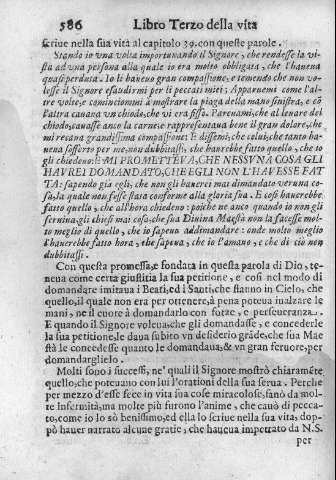 586 Libro Terzo della vita
scriue nella sua vita al capitolo 39. con queste parole.
Stando io vna volta importunando il Signore, che rendesse la vi-
sta ad vna persona alla quale io era molto obbligata, che l'haueua
quasi perduta. Io li haueuo gran compassione, e temendo che non vo-
lesse il Signore esaudirmi per li peccati miei; Apparuemi come l'al-
tre volte, e cominciommi à mostrare la piaga della mano sinistra, e cō
l'altra cauaua vn chiodo, che vi era fisso. Pareuami, che al leuare del
chiodo, cauasse anco la carne: e rappresentaua bene il gran dolore, che
mi recaua grandissima compassione: E dissemi, che colui, che tanto ha-
ueua sofferto per me, non dubitassi, che hauerebbe fatto quello, che io
gli chiedeuo: E MI PROMETTEVA, CHE NESSVNA COSA GLI
HAVREI DOMANDATO, CHE EGLI NON L'HAVESSE FAT
TA: sapendo già egli, che non gli hauerei mai dimandato veruna co-
sa, la quale non fusse stata conforme alla gloria sua. E così hauerebbe
fatto quello, che all'hora chiedeuo; poiche ne anco quando io non gli
seruiua, gli chiesi mai cosa, che sua Diuina Maestà non la facesse mol-
to meglio di quello, che io sapeuo addimandare: onde molto meglio
l'hauerebbe fatto hora, che sapeua, che io l'amauo, e che di ciò non
dubbitassi.
Con questa promessa, e fondata in questa parola di Dio, te-
neua come certa giustitia la sua petitione, e così nel modo di
domandare imitaua i Beati, ed i Santi, che stanno in Cielo, che
quello, il quale non era per ottenere, à pena poteua inalzare le
mani, ne il cuore à domandarlo con forze, e perseueranza.
E quando il Signore voleua, che gli domandasse, e concederle
la sua petitione, le daua subito vn desiderio grāde, che sua Mae
stà le concedesse quanto le domandaua, & vn gran feruore, per
domandarglielo.
Molti sono i successi, ne' quali il Signore mostrò chiaramēte
quello, che poteuano con lui l'orationi della sua serua. Perche
per mezzo d'esse fece in vita sua cose miracolose, sanò da mol-
te Infermità, ma molte più furono l'anime, che cauò di pecca-
to, come io lo sò benissimo, ed ella lo scriue nella sua vita, dop-
pò hauer narrato alcune gratie, che haueua impetrato da N.S.
per